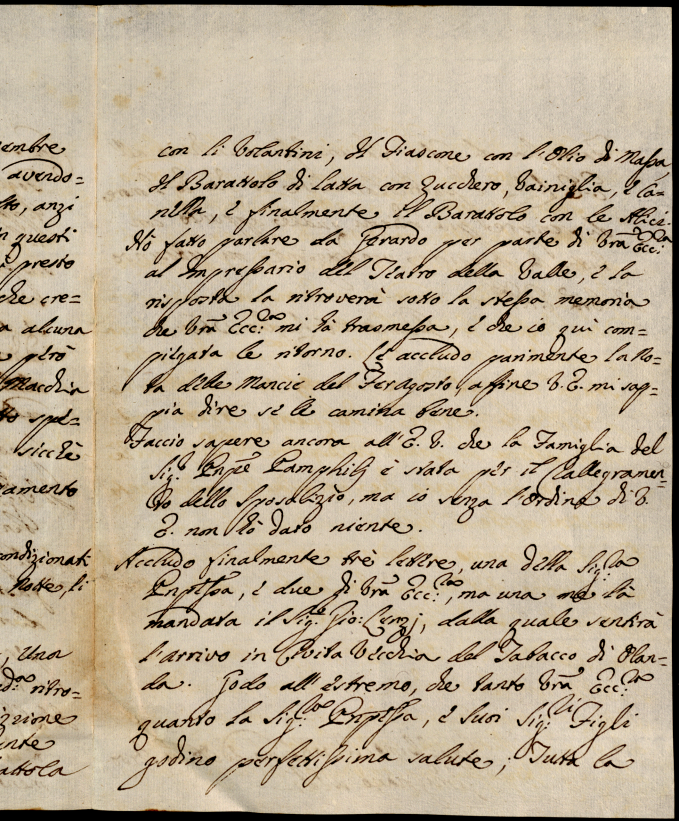 embre
avendo=
to, anzi
in questi
presto
che cre=
a alcuna
però
Macchia
to spe=
sicchè
camento
condizionati
Notte, li
Una
ritro=
izzione
unte
attola
con li Volantini, Il Fiascone con l'Olio di Massa
Il Barattolo di latta con Zucchero, Vainiglia, e Ca=
nella, e finalmente Il Barattolo con le Alici.
Hò fatto parlare da Gerardo per parte di Vrã Ecc:za
al Impressario dell Teatro della Valle, e la
risposta la ritroverà sotto la stessa memoria
che Vrã Ecc:za mi hà trasmessa, e che io quì com=
piegata le ritorno. Le accludo parimente la No=
ta delle Mancie del Feragosto, affine V. E. mi sap=
pia dire se le camina bene.
Faccio sapere ancora all'E. V. che la Famiglia del
Sig.r Pnpe Pamphilj è stata per il Rallegramen=
to dello Sposalizio, ma io senza l'Ordine di V.
E. non hò dato niente.
Accludo finalmente trè lettere, una della Sig.ra
Pnpessa, e due di Vrã Ecc:za, ma una me la
mandata il Sig.r Gio: Cenzj, dalla quale sentirà
l'arrivo in Civita Vecchia del Tabacco di Olan=
da. Godo all'estremo, che tanto Vrã Ecc:za
quanto la Sig.ra Pnpessa, e Suoi Sig.ri Figli
godino perfettissima salute; Tutta la